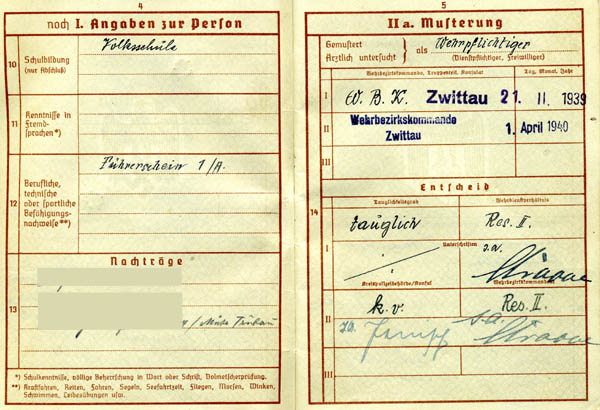 4
noch I. Angaben zur Person
10
Schulbildung
(nur Abschluß)
Volksschule
11
Kenntnisse in
Fremd-
sprachen*)
12
Berufliche,
technische
oder sportliche
Befähigungs-
nachweise**)
Führerschein 1/A.
Nachträge
13
*) Schulkenntnisse, völlige Beherrschung in Wort oder Schrift, Dolmetscherprüfung.
**) Kraftfahren, Reiten, Fahren, Segeln, Seefahrtzeit, Fliegen, Morsen, Winken,
Schwimmen, Leibesübungen usw.
5
II a. Musterung
Gemustert
Ärztlich untersucht
als
Wehrpflichtiger
(Dienstpflichtiger, Freiwilliger)
Wehrbezirkskommando, Truppenteil, Konsulat
Tag, Monat, Jahr
I
W. B. K. Zwittau 21. II. 1939
II
Wehrbezirkskommando
Zwittau
1. April 1940
III
Entscheid
14
Tauglichkeitsgrad
Wehrdienstverhältnis
I
tauglich
Res. II.
Unterschriften
Kreispolizeibehörde/Konsul
Wehrbezirkskommandeur
II
k. v.
Res. II.
III